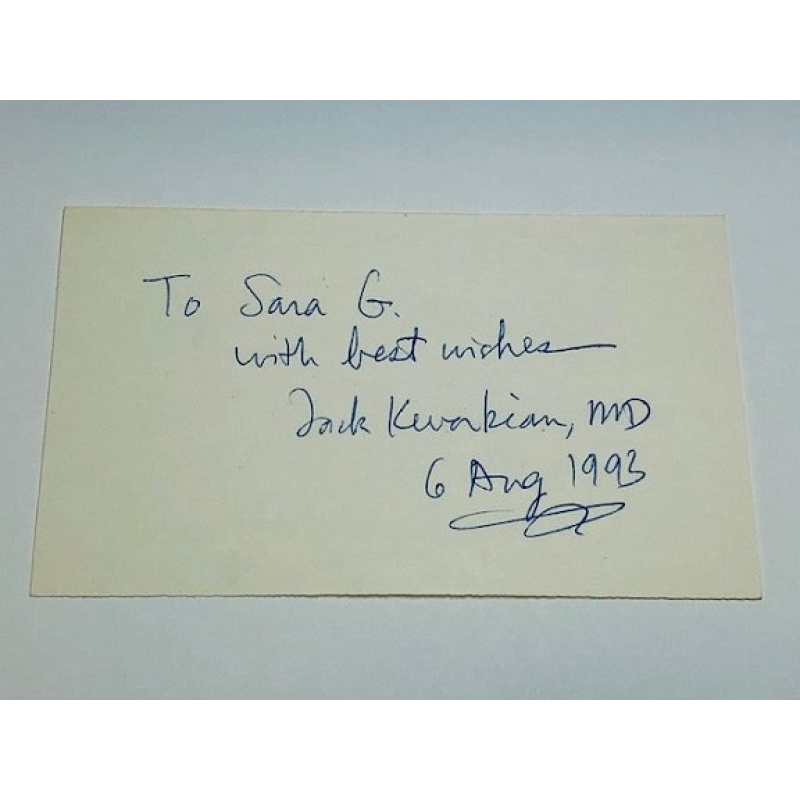 To Sara G.
with best wishes
Jack Kevorkian, MD
6 Aug 1993